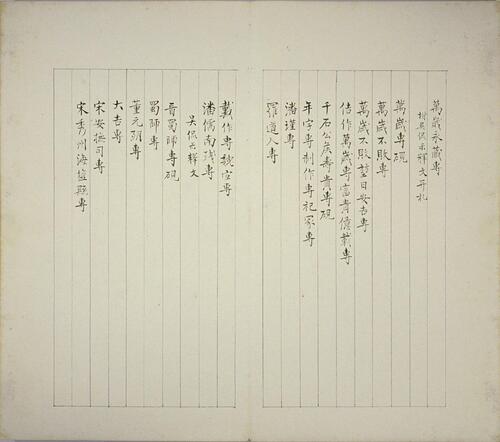 萬歲永藏專
附吳侃未釋文并札
萬歲專硯
萬歲不敗專
萬歲不敗 日安吉專
佶作萬歲專富貴億載專
千石公矦壽貴專硯
年字專制作專祀冢專
潘瑾專
羅道人專
戴作專 室專
潘儒南殘專
吳侃 釋文
晉蜀師專硯
蜀師專
董元 專
大吉專
宋安撫司專
宋秀州海鹽縣專